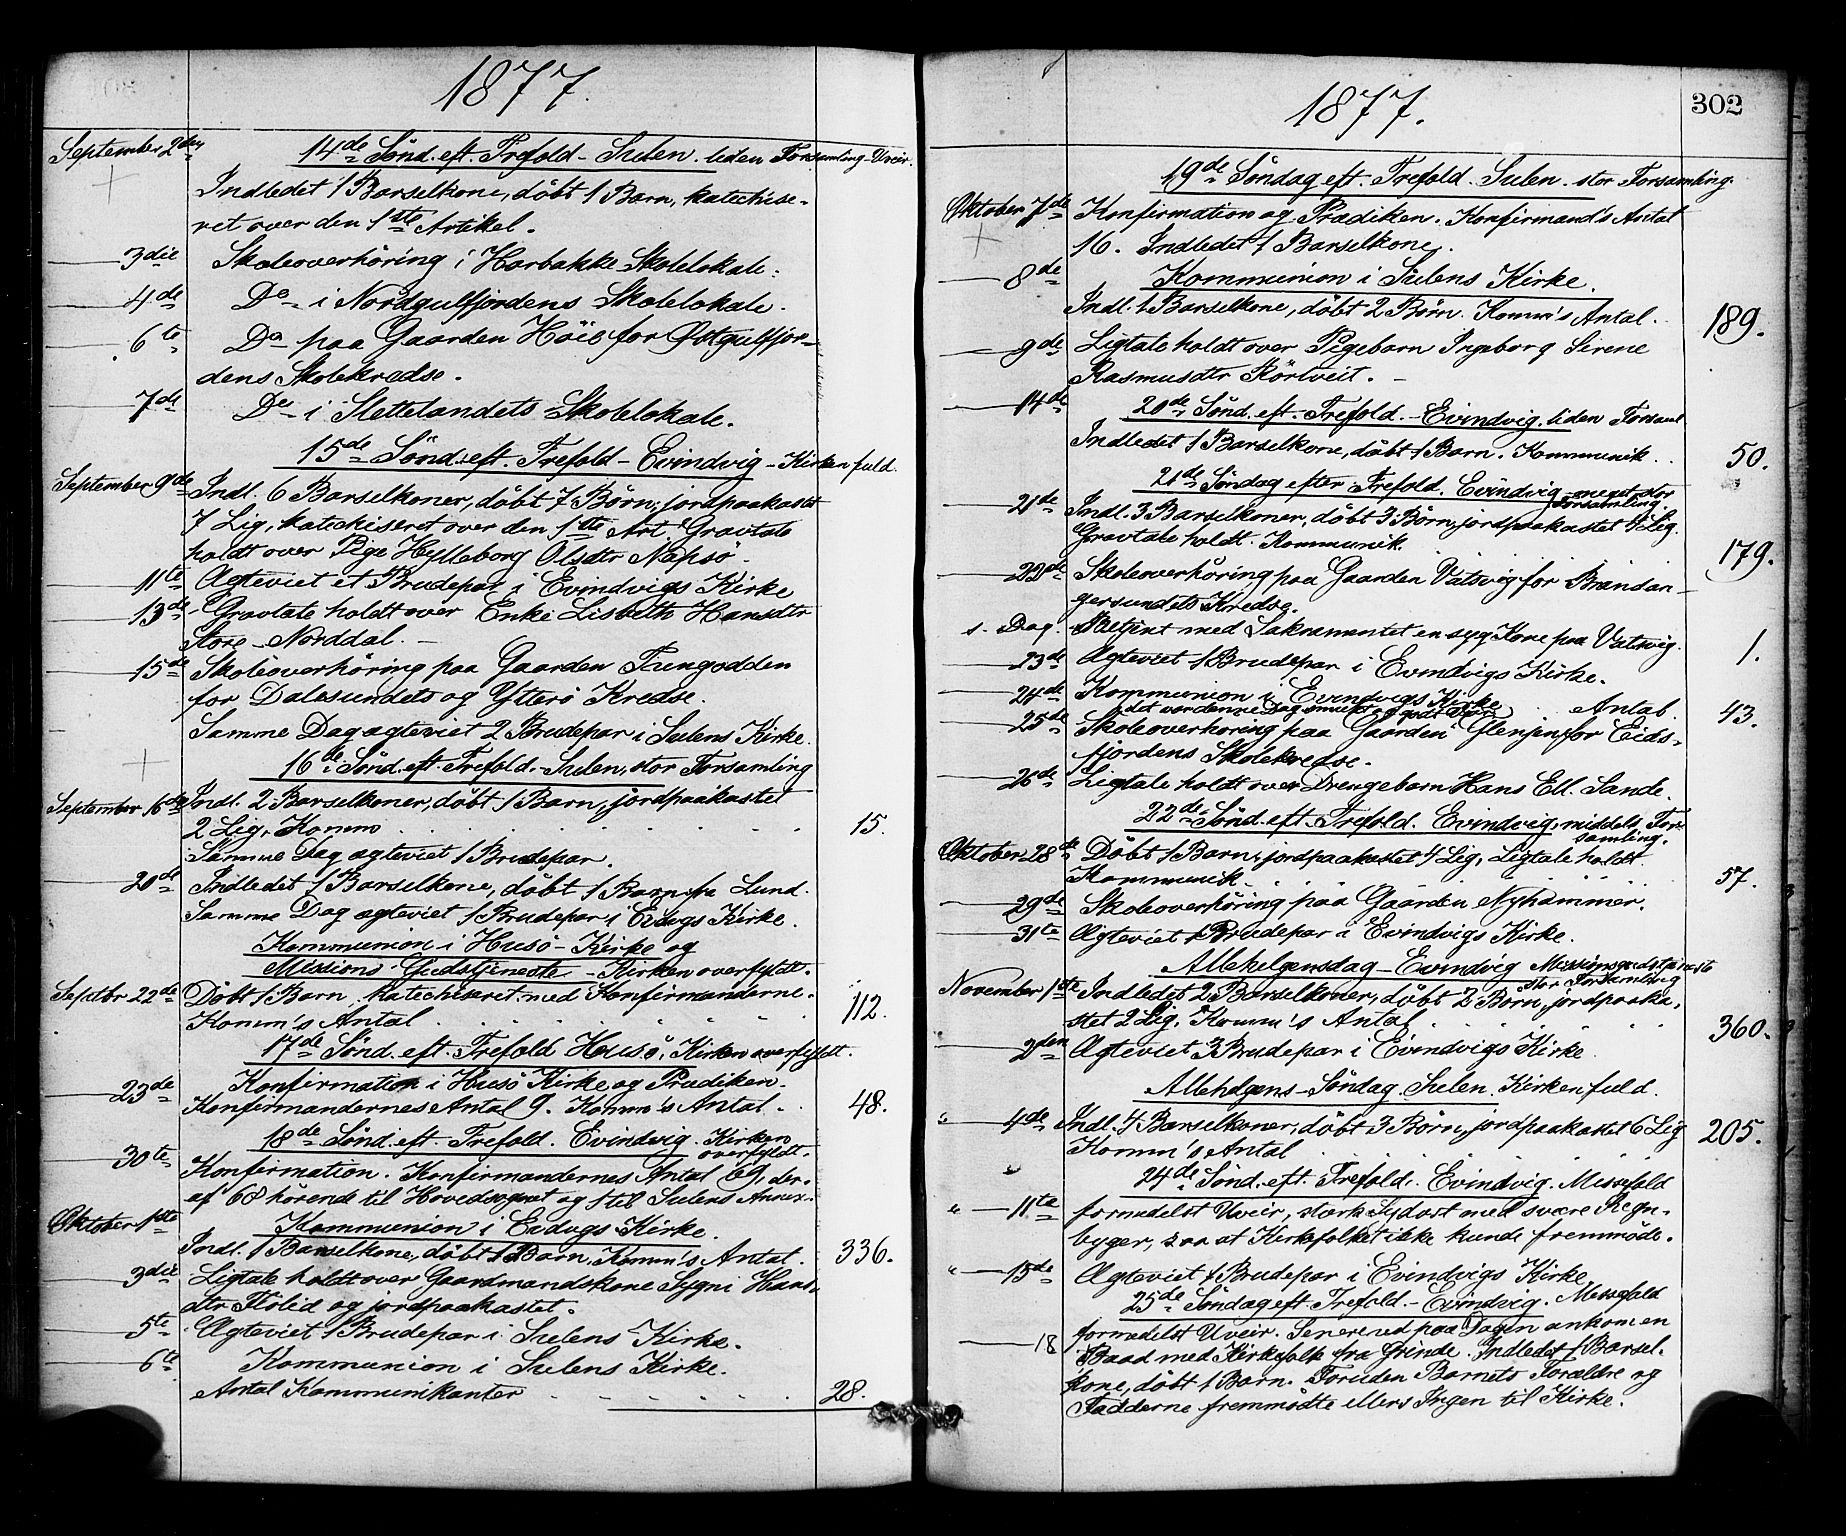 1877.
September 2den 14de Sønd. eft. Trefold. - Sulen. liden Forsamling - Uveir.
Indledet 1 Barselkone, döbt 1 Barn, katechise-
ret over den 1ste Artikel.
3die Skoleoverhöring i Harbakke Skolelokale.
4de Do i Nordgulfjordens Skolelokale.
6te Do paa Gaarden Höie for Østgulfjor-
dens Skolekredse.
7de Do i Slettelandets Skolelokale.
15de Sønd. eft. Trefold - Evindvig - Kirken fuld.
September 9de Indl. 6 Barselkoner, döbt 7 Börn, jordpaakastet
7 Lig, katechiseret over den 1ste Art. Gravtale
holdt over Pige Hylleborg Olsdtr Napsö.
11te Ægteviet et Brudepar i Evindvigs Kirke
13de Gravtale holdt over Enke Lisbeth Hansdtr
Store Norddal.
15de Skoleoverhöring paa Gaarden
for Dalesundets og Ytterö Kredse.
Samme Dag ægteviet 2 Brudepar i Sulens Kirke.
16de Sönd. eft. Trefold. - Sulen, stor Forsamling
September 16de Indl. 2 Barselkoner, döbt 1 Barn, jordpaakastet
2 Lig, Komm . . . 15.
Samme Dag ægteviet 1 Brudepar.
20de Indledet 1 Barselkone, döbt 1 Barn fra Lund.
Samme Dag ægteviet 1 Brudepar i Evdvgs Kirke.
Kommunion i Husö - Kirke og
Missions-Gudstjeneste - Kirken overfyldt.
Septbr 22de Döbt 1 Barn, katechiseret med Konfirmanderne.
Komm's Antal . . . 112.
17de Sönd. eft. Trefold Husö, Kirken overfyldt.
23de Konfirmation i Husö Kirke og Prædiken.
Konfirmandernes Antal 9. Komm's Antal . 48.
18de Sönd. eft. Trefold. Evindvig. Kirken
overfyldt.
30te Konfirmation. Konfirmandernes Antal 69, der-
af 68 hörende til Hovedsognet og 1 til Sulens Annex.
Oktober 1ste Kommunion i Evdvgs Kirke.
Indl. 1 Barselkone, döbt 1 Barn, Komm's Antal. 336.
3die Ligtale holdt over Gaardmandskone Sygni Hans-
dtr Flolid og jordpaakastet.
5te Ægteviet 1 Brudepar i Sulens Kirke.
6te Kommunion i Sulens Kirke.
Antal Kommunikanter . . . 28.
1877.
302
19de Söndag eft. Trefold. Sulen. stor Forsamling.
Oktober 7de Konfirmation og Prædiken. Konfirmand's Antal
16. Indledet 1 Barselkone.
8de Kommunion i Sulens Kirke.
Indl. 1 Barselkone, döbt 2 Börn. Komm's Antal. 189.
9de Ligtale holdt over Pigebarn Ingeborg Sirene
Rasmusdtr Körtveit.
14de 20de Sönd. eft. Trefold. - Evindvig. liden Forsaml
Indledet 1 Barselkone, döbt 1 Barn. Kommunik . . 50.
21de Söndag efter Trefold. Evindvig, meget stor
Forsamling.
21de Indl. 3 Barselkoner, döbt 3 Börn, jordpaakastet 4 Lig.
Gravtale holdt. Kommunik. 179.
22de Skoleoverhöring paa Gaarden Vatsvig for Brandan-
gersundets Kredse.
s. Dag. Betjent med Sakramentet en syg Kone paa Vatsvig. 1.
23de Ægteviet 1 Brudepar i Evindvigs Kirke.
24de Kommunion i Evindvigs Kirke Antal. 43.
det var denne Dag smukt og godt Veir
25de Skoleoverhöring paa Gaarden Glenjen for Eids-
fjordens Skolekredse.
26de Ligtale holdt over Drengebarn Hans Ell. Sande.
22de Sönd. eft. Trefold. Evindvig, middels For-
samling.
Oktober 28de Döbt 1 Barn, jordpaakastet 4 Lig, Ligtale holdt.
Kommunik . . . 57.
29de Skoleoverhöring paa Gaarden Nyhammer.
31te Ægteviet 1 Brudepar i Evindvigs Kirke.
Allehelgensdag - Evindvig Missionsgudstjeneste
stor Forsamling
November 1ste Indledet 2 Barselkoner, döbt 2 Börn, jordpaaka-
stet 2 Lig, Komm's Antal . . . 360.
2den Ægteviet 3 Brudepar i Evindvigs Kirke
Allehelgens-Söndag. Sulen. Kirken fuld.
" 4de Indl. 4 Barselkoner, döbt 3 Börn, jordpaakastet 6 Lig 205.
Komm's Antal
24de Sönd. eft. Trefold. Evindvig. Messefald
" 11te formedelst Uveir, stærk Sydost med svære Regn-
byger, saa at Kirkefolket ikke kunde fremmöde.
" 15de Ægteviet 1 Brudepar i Evindvigs Kirke
25de Söndag eft. Trefold. - Evindvig. Messefald
18 formedelst Uveir. Senere ud paa Dagen ankom en
Baad med Kirkefolk fra Grinde. Indledet 1 Barsel-
kone, döbt 1 Barn. Foruden Barnets Forældre og
Fadderne fremmödte ellers Ingen til Kirke.